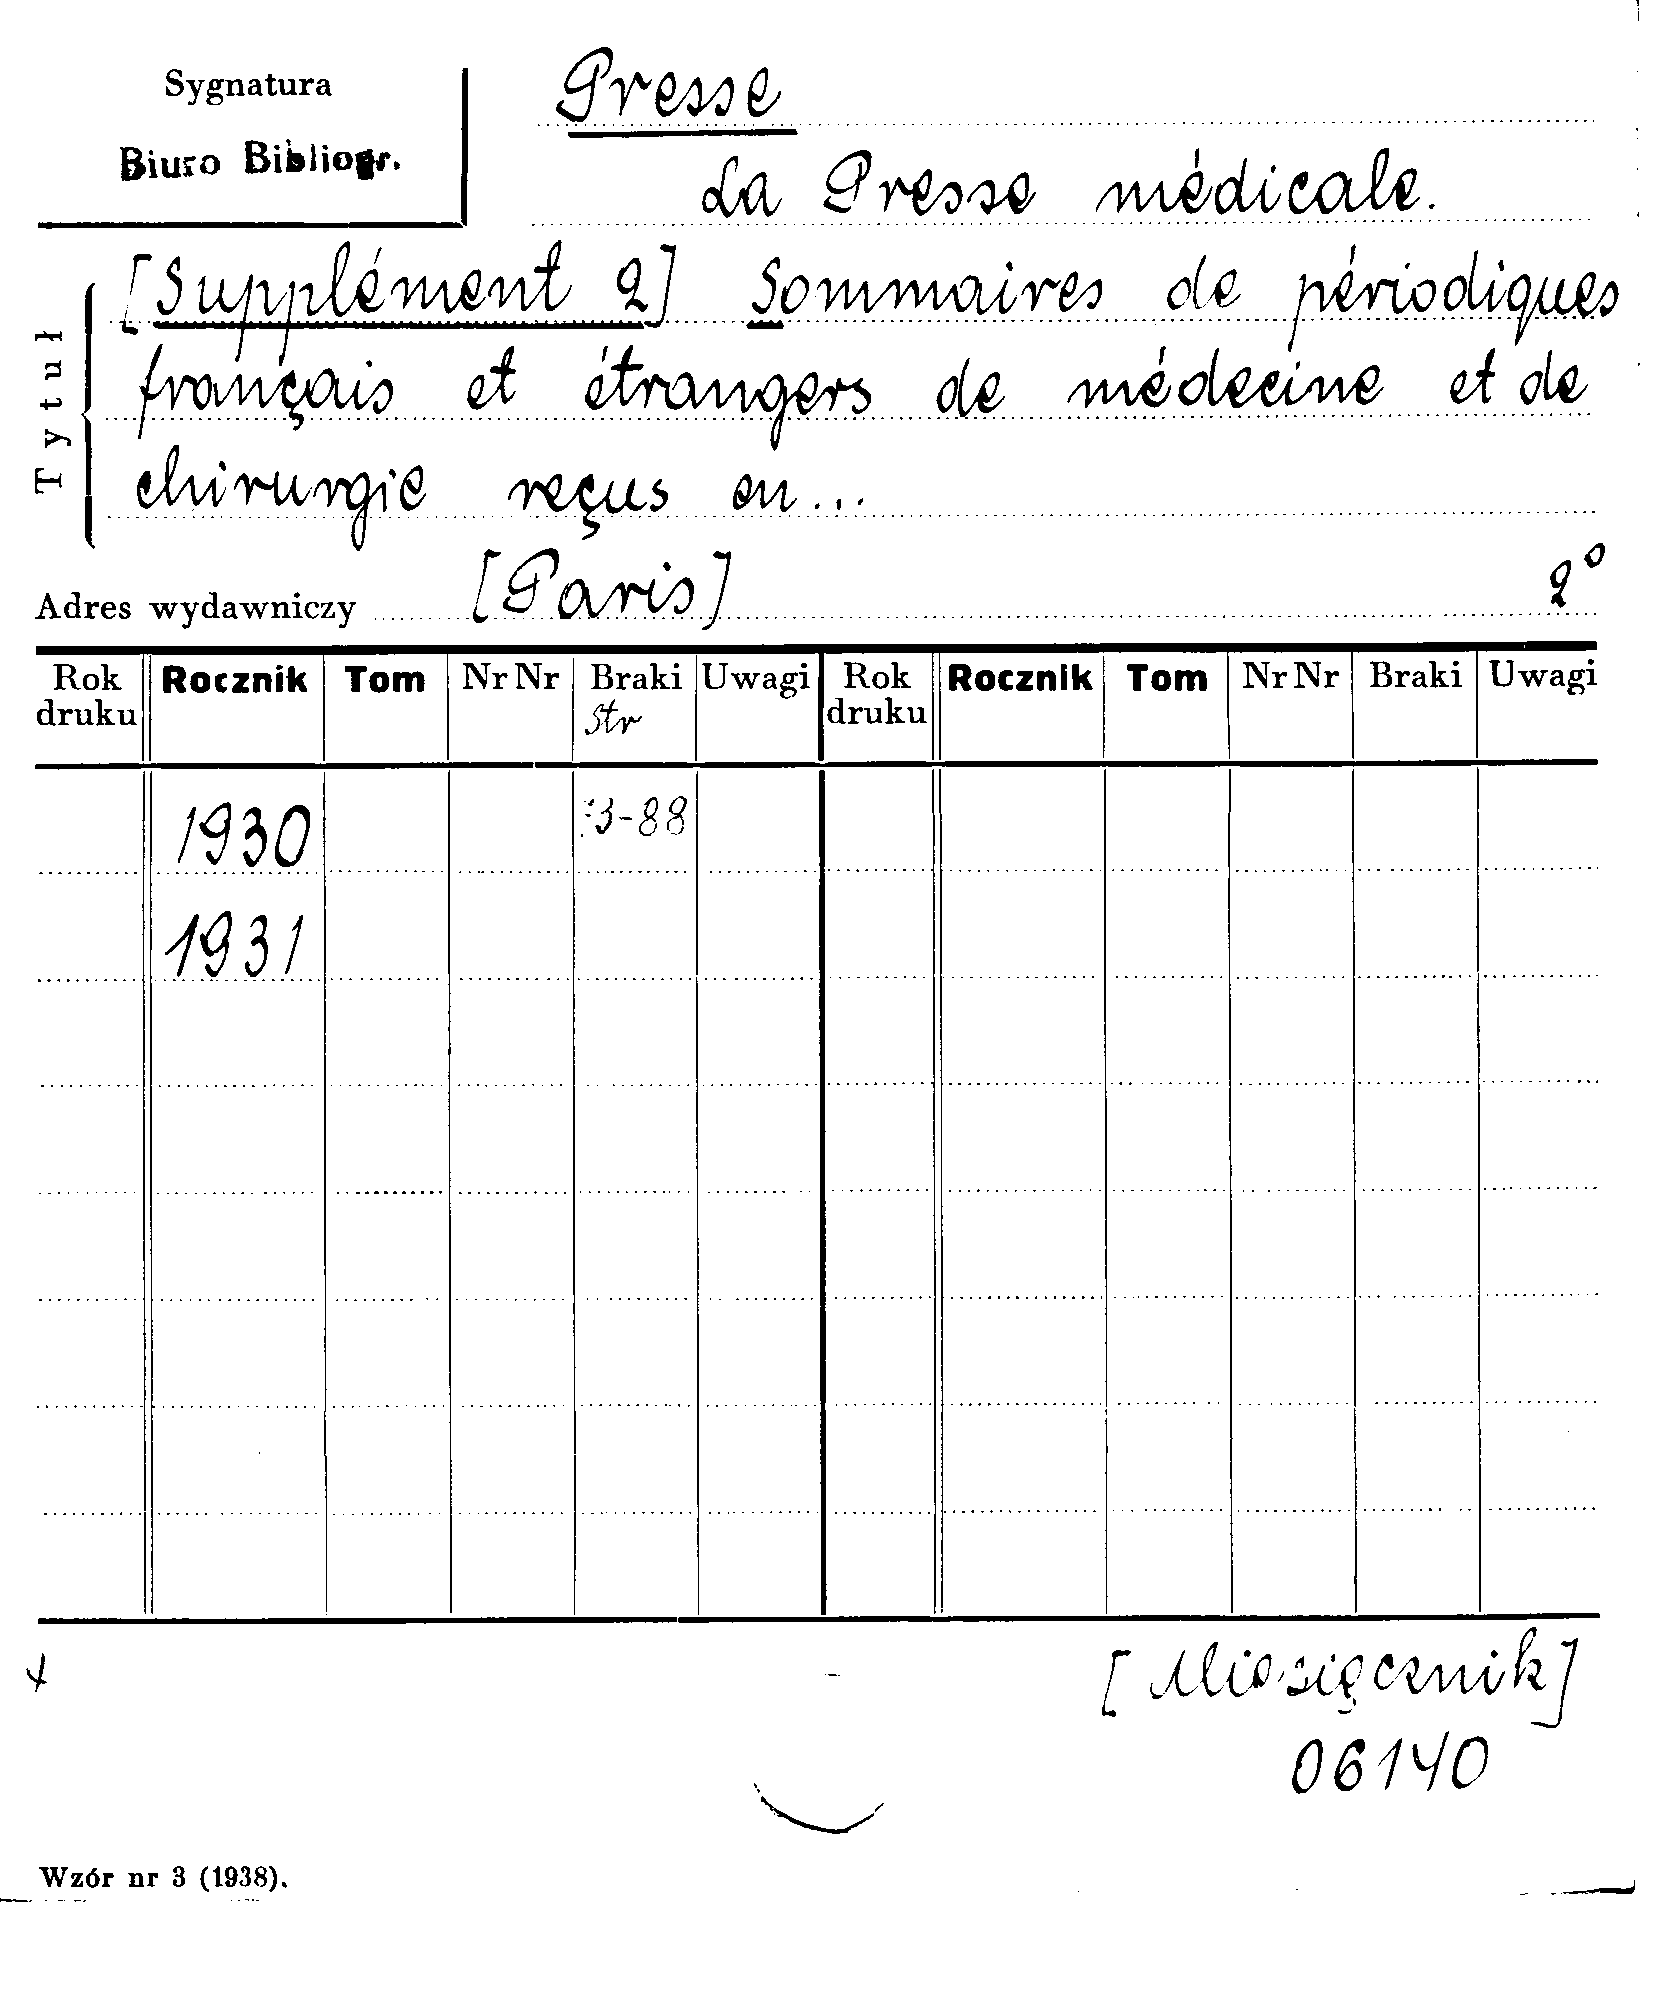 Sygnatura
Biuro Bibliogr.
Presse
La Presse médicale.
Tytuł
[Supplément 2] Sommaires de périodiques
français et étrangers de médecine et de
chirurgie reçus en...
Adres wydawniczy [Paris] 2°
Rok druku Rocznik Tom Nr Nr Braki Uwagi Rok druku Rocznik Tom Nr Nr Braki Uwagi
Str
1930 3-88
1931
[Miesięcznik]
06140
Wzór nr 3 (1938).